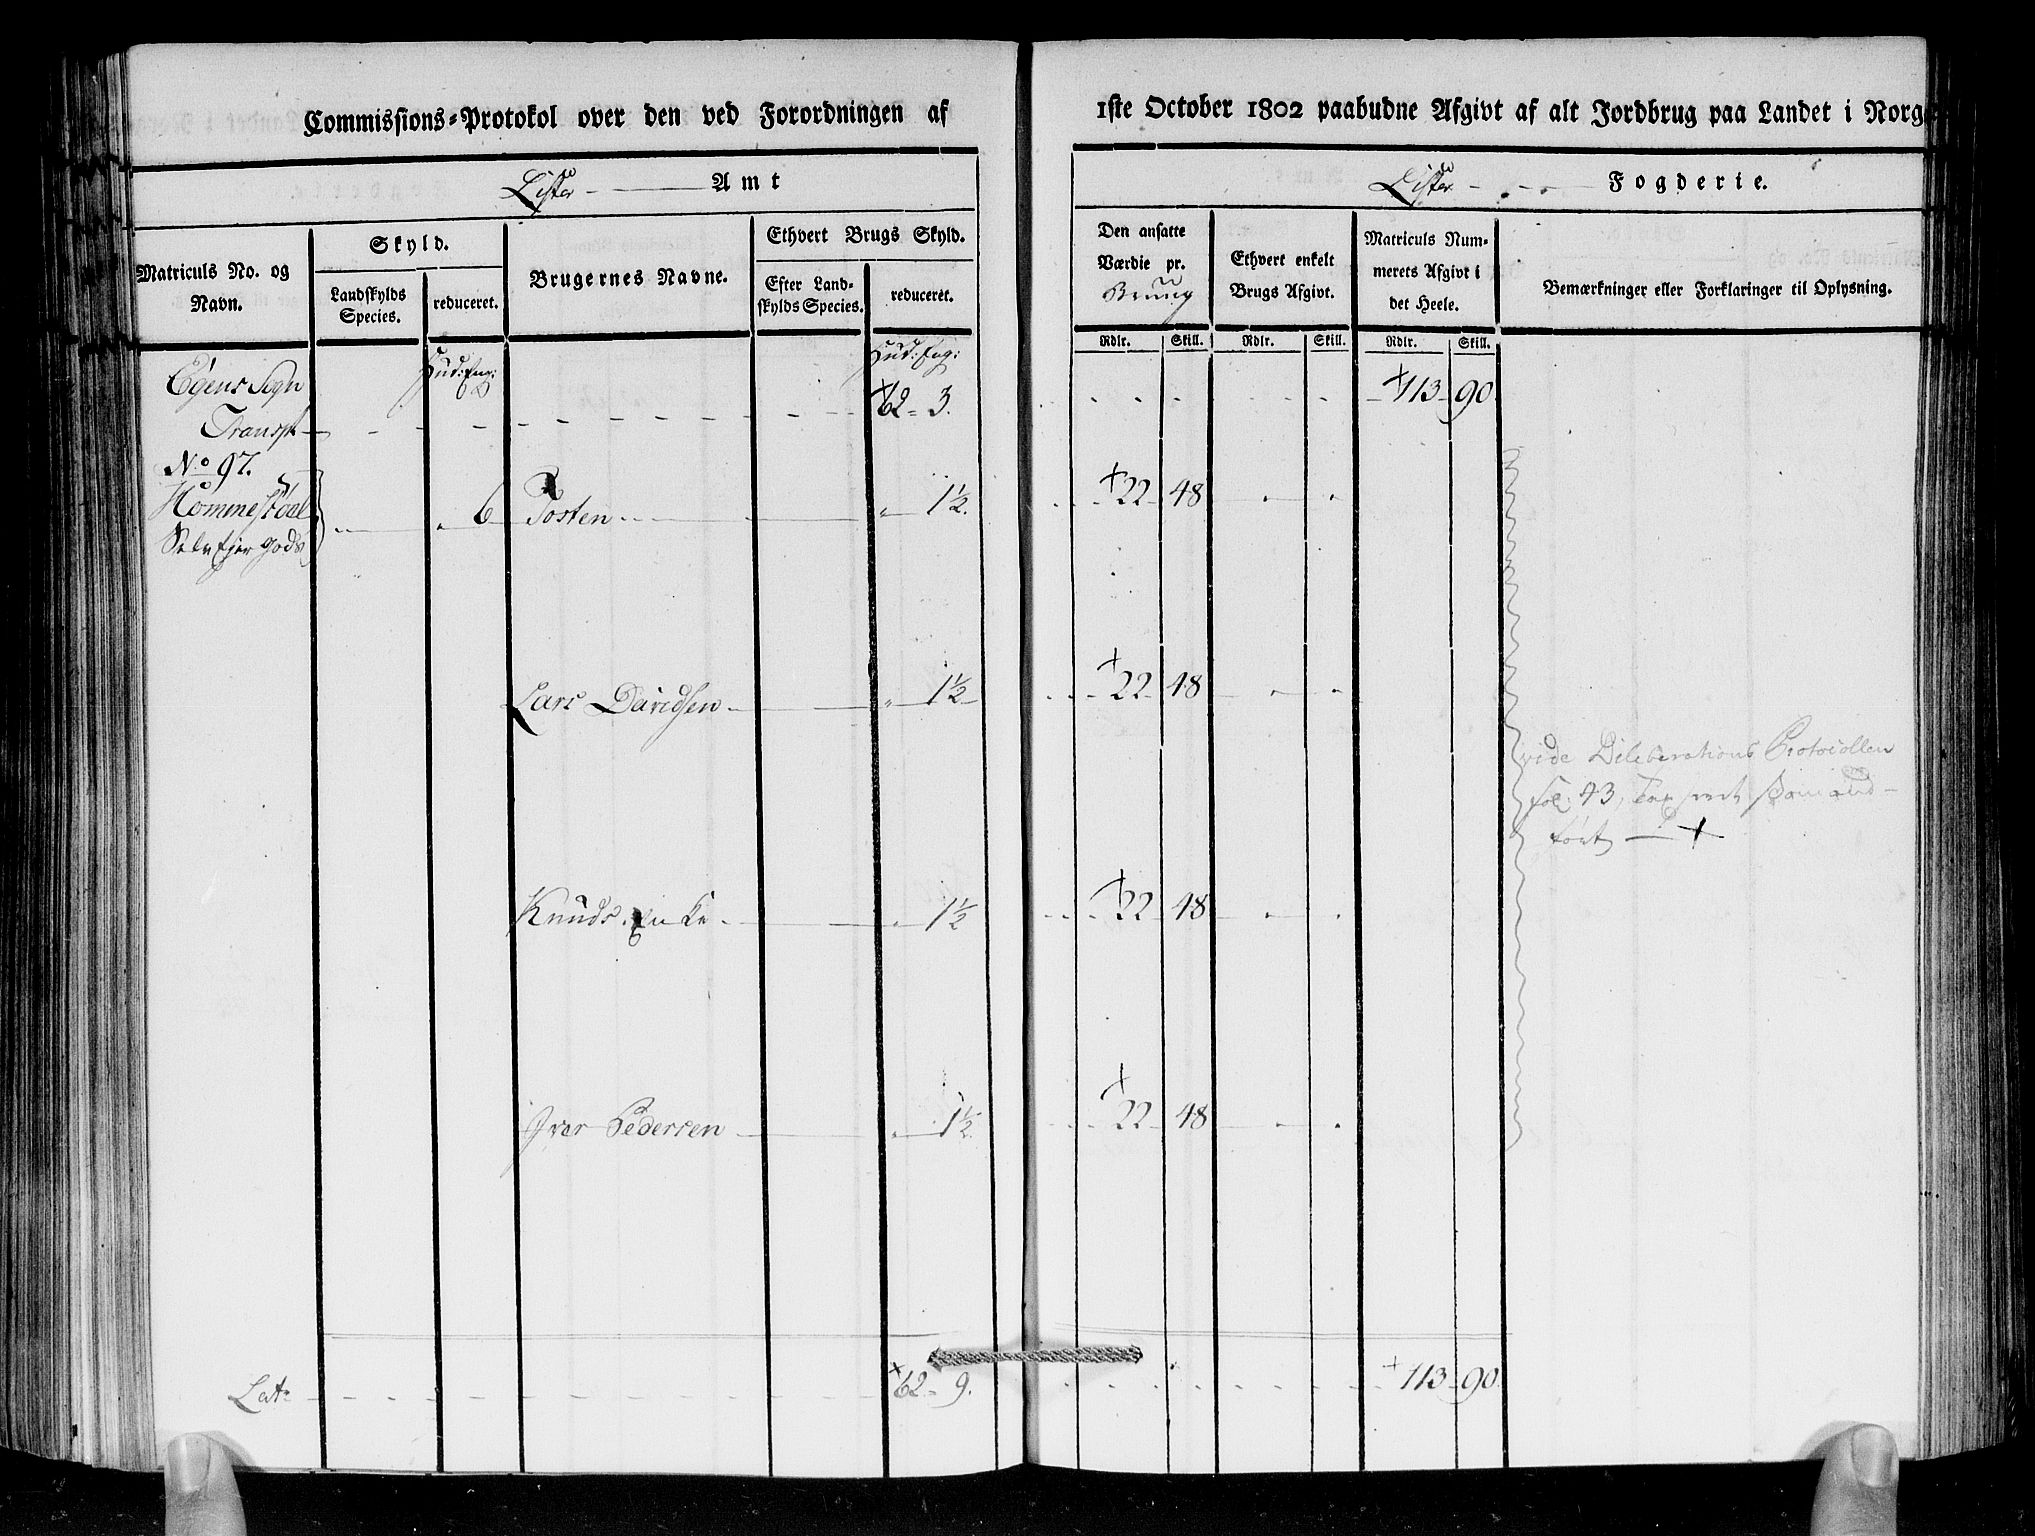 Commissions-Protokol over den ved Forordningen af 1ste October 1802 paabudne Afgivt af alt Jordbrug paa Landet i Norg
Lister Amt
Lister Fogderie.
Matriculs No. og Navn.
Skyld.
Landskylds Species.
reduceret.
Brugernes Navne.
Ethvert Brugs Skyld.
Efter Landskylds Species.
reduceret.
Den ansatte Værdie pr.
Ethvert enkelt Brugs Afgivt.
Matriculs Nummerets Afgivt i det Heele.
Bemærkninger eller Forklaringer til Oplysning.
Rdlr. Skill. Rdlr. Skill. Rdlr. Skill.
Hud: Eng: Hud: Eng:
Transpt 62 - 3. 113 - 90
No 97.
Hommesdal 6 Tosten 1½. 22 - 48
Selveyer gods
Lars Davidsen 1½ 22 - 48
vide Deliberations Protocollen
fol: 43,
ført +
Knuds Enke 1½ 22 - 48
Iver Pedersen 1½. 22 - 48
Lat: 62 - 9. 113 - 90